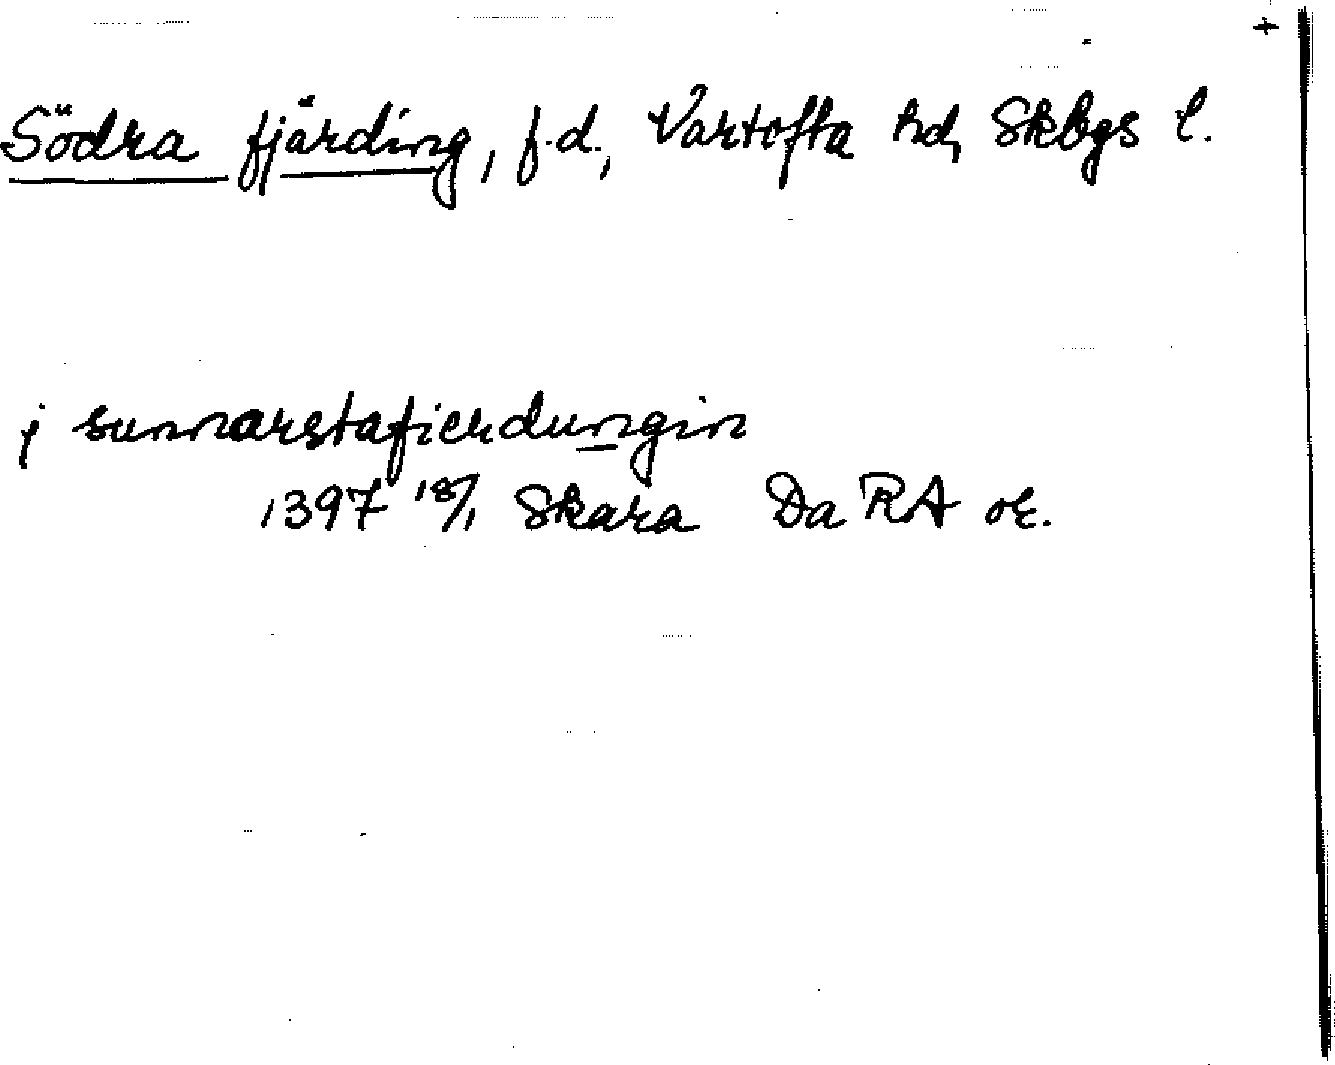 +
Södra fjärding, f.d., Vartofta hd, Skbgs l.
j sunnarstafierdungin
1397 18/1 Skara Da RA or.